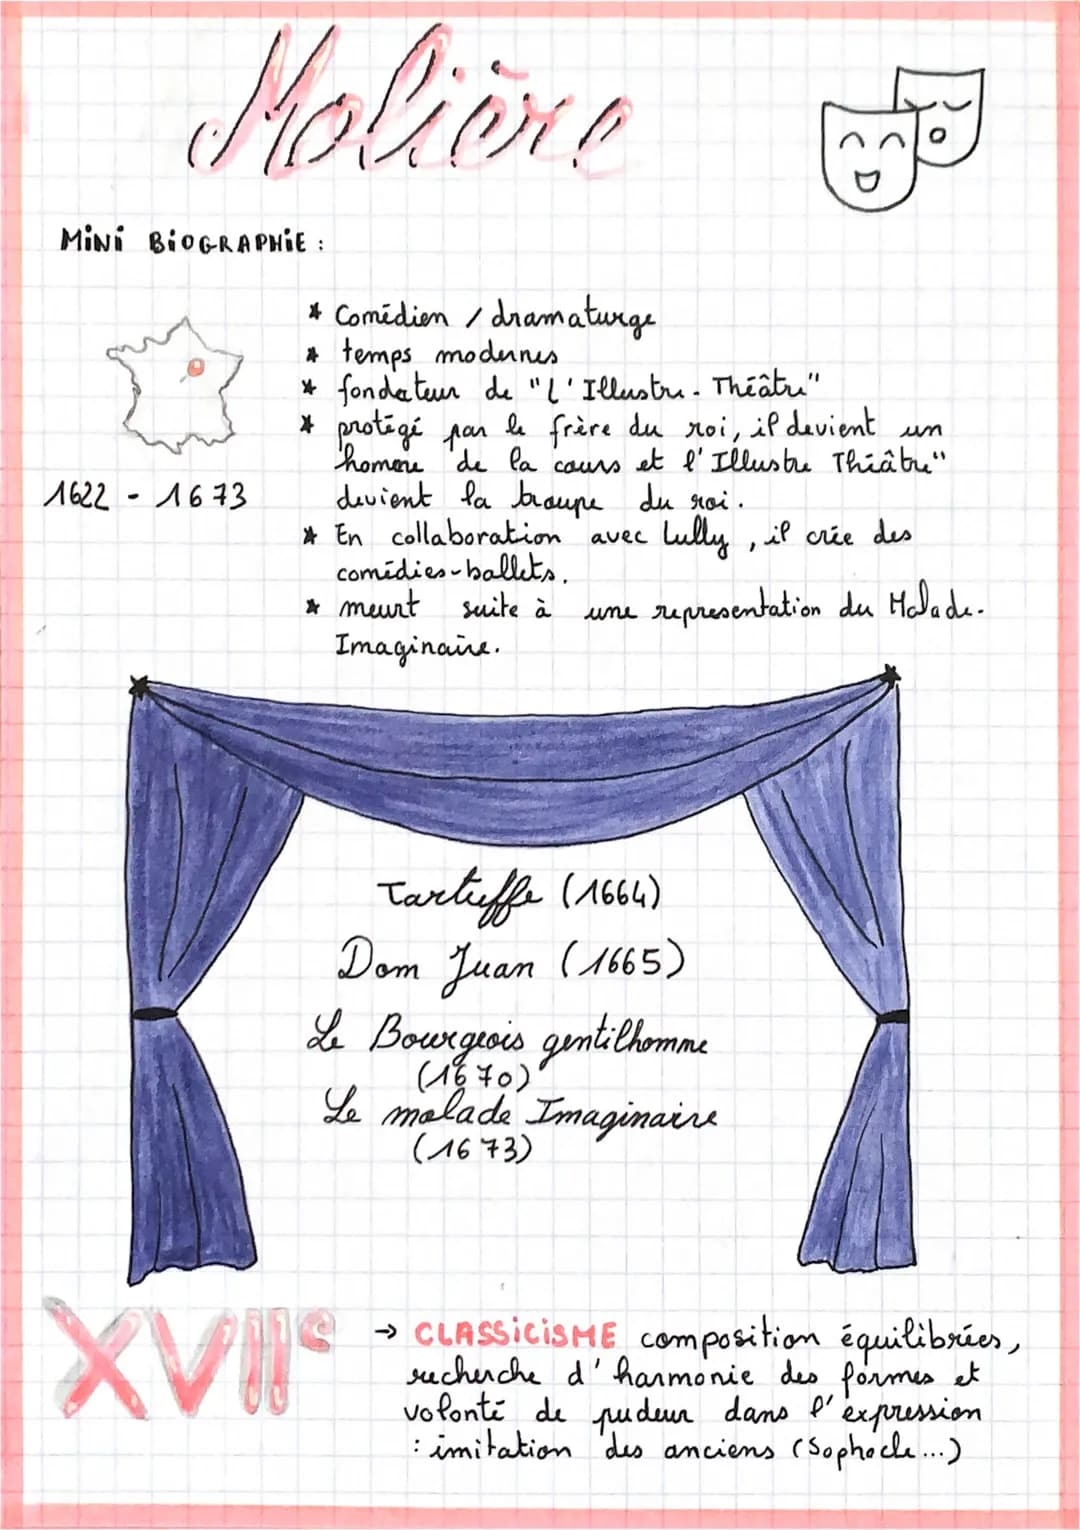 Molière
MiNi BiOGRAPHiE :
* Comédien / dramaturge
* temps modernes
* fondateur de "L'Illustre-Théâtre"
* protégé par le frère du roi, il devient un
homme de la cours et l'Illustre Théâtre"
devient la troupe du roi.
1622 - 1673
* En collaboration avec Lully, il crée des
comédies-ballets.
* meurt suite à une representation du Malade-
Imaginaire.
Tartuffe (1664)
Dom Juan (1665)
Le Bourgeois gentilhomme
(1670)
Le malade Imaginaire
(1673)
XVIIe
→ CLASSiCiSME composition équilibrées,
recherche d'harmonie des formes et
volonté de pudeur dans l'expression
: imitation des anciens (Sophocle...)